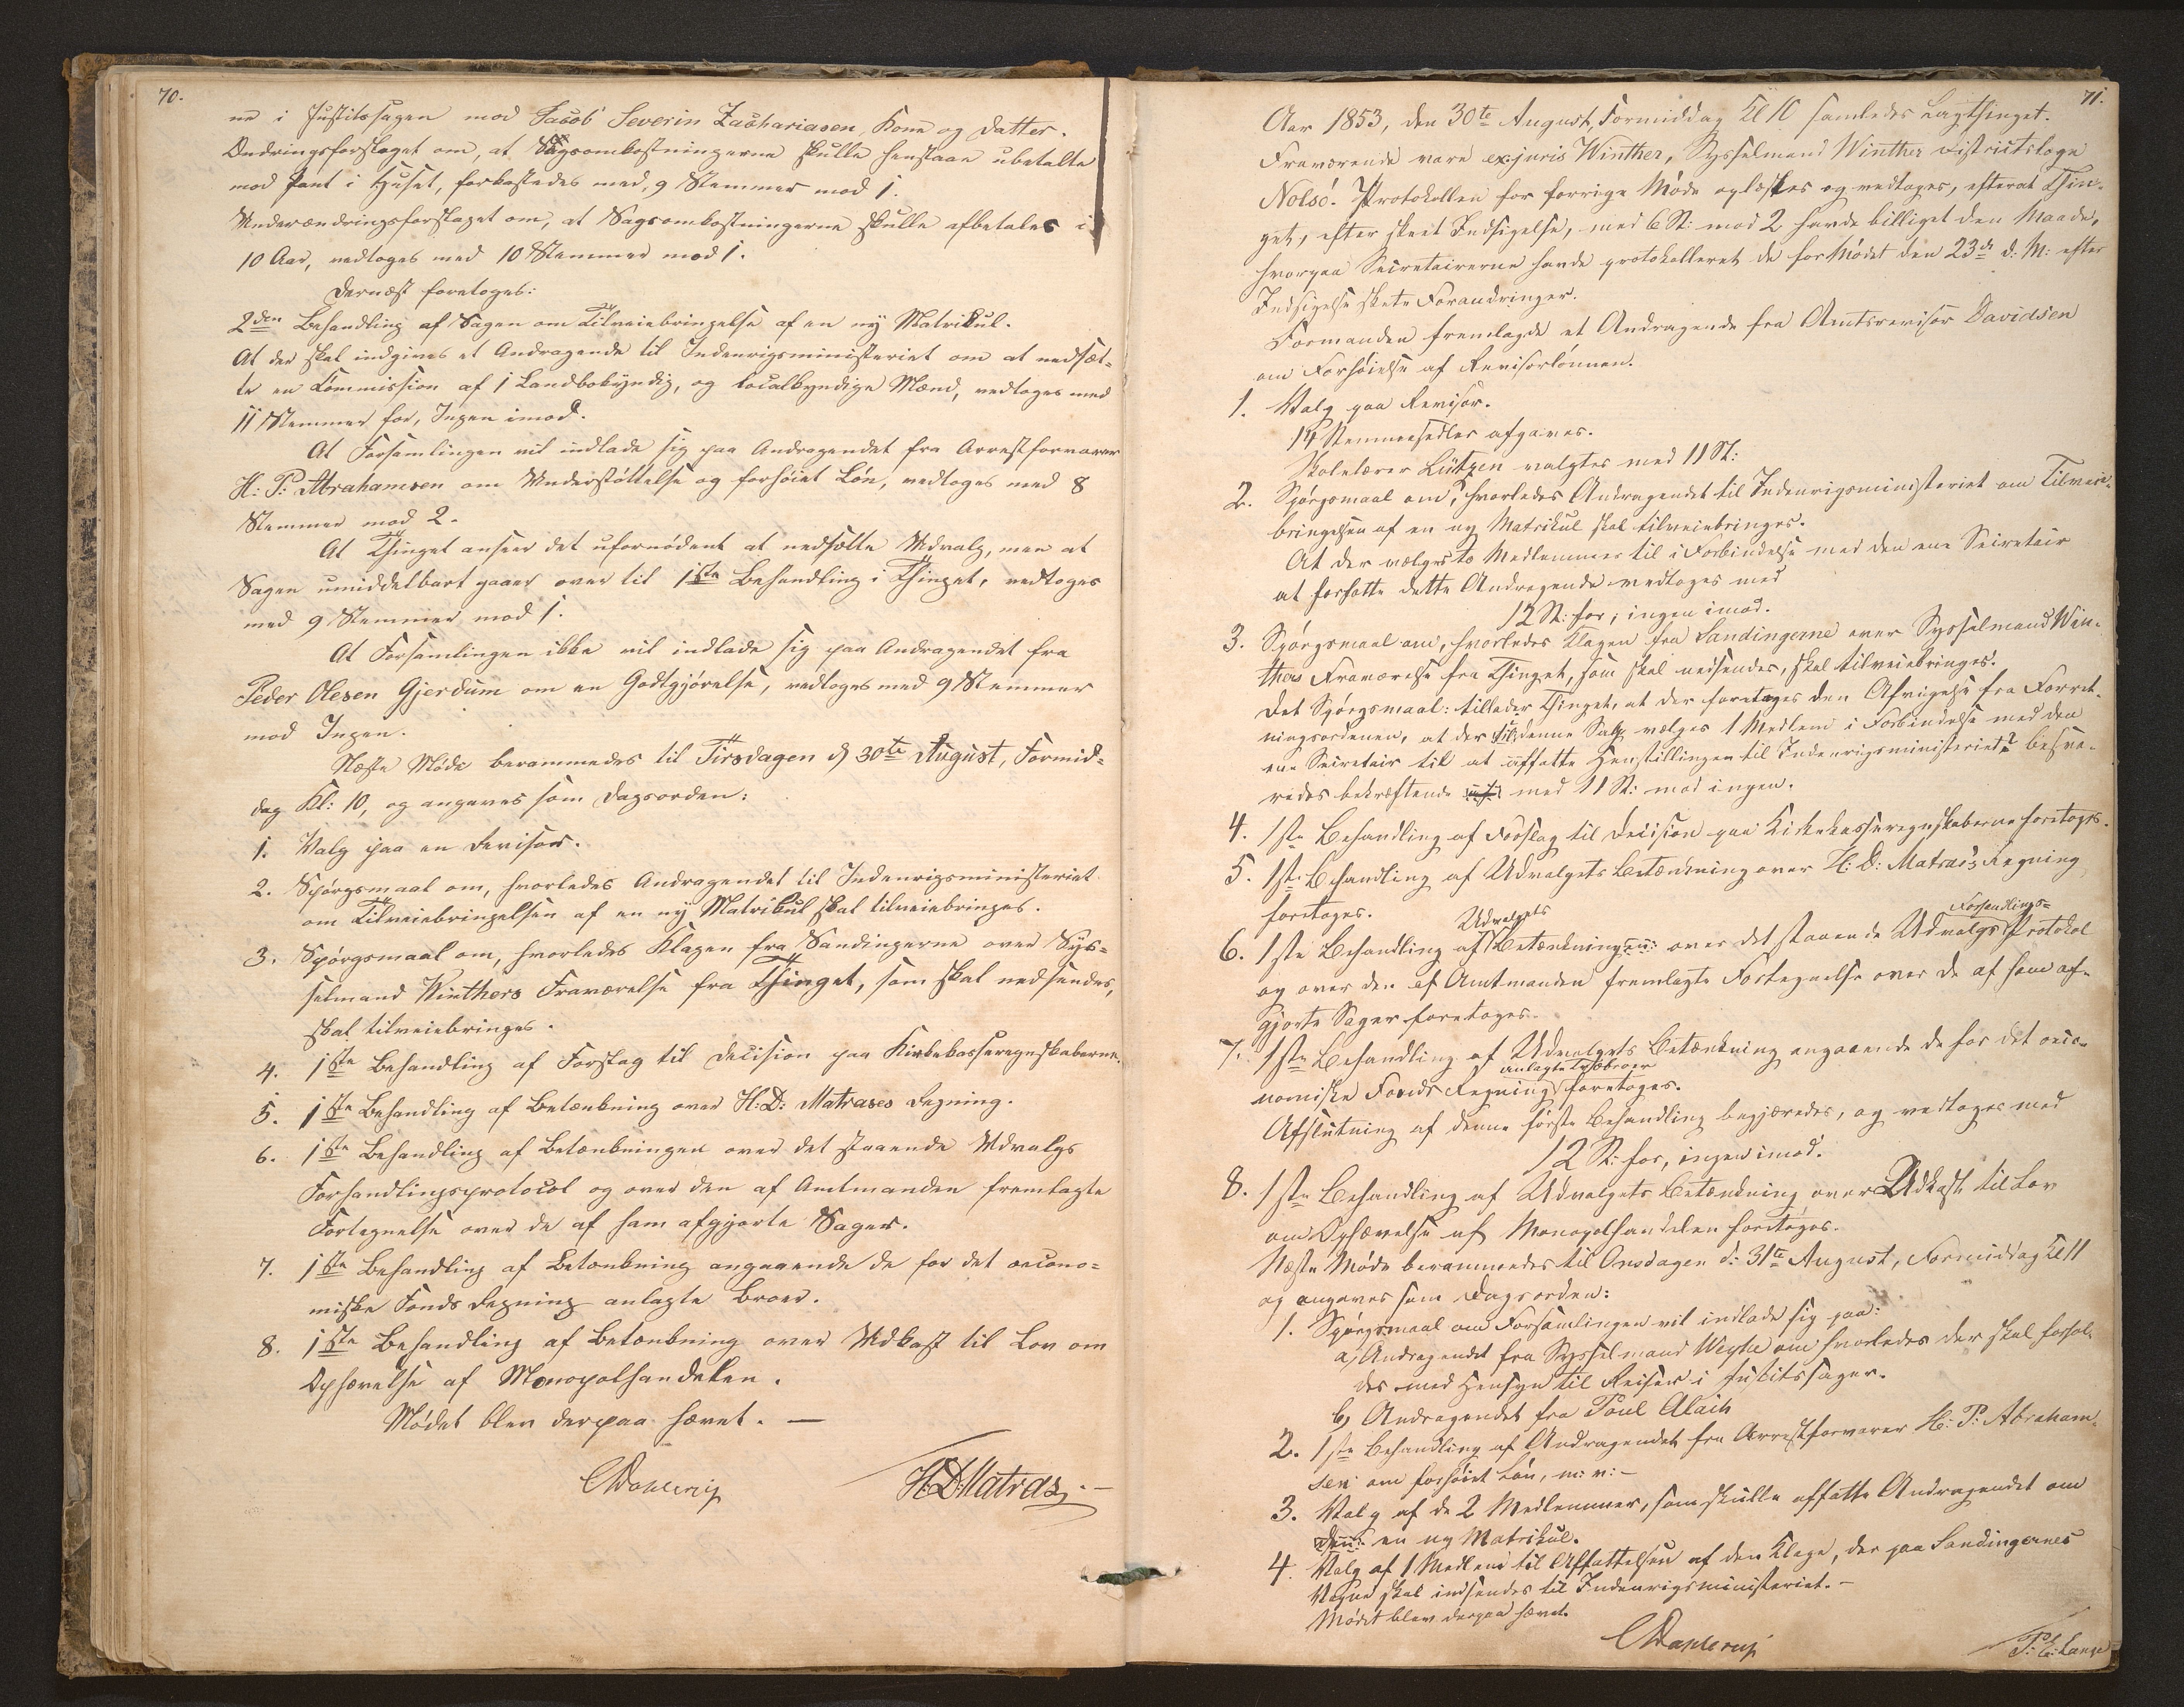 70.
ne i Justitssagen mod Jacob Severin Zachariasen, Kone og Datter.
Ændringsforslaget om, at Sagsomkostningerne skulle henstaae ubetalte
mod Pant i Huset, forkastedes med 9 Stemmer mod 1.
Underændringsforslaget om, at Sagsomkostningerne skulle afbetales i
10 Aar, vedtoges med 10 Stemmer mod 1.
Dernæst foretoges:
2den Behandling af Sagen om Tilveiebringelse af en ny Matrikul.
At der skal indgives et Andragende til Indenrigsministeriet om at nedsæt-
te en Commission af 1 Landbokyndig, og localkyndige Mænd, vedtoges med
11 Stemmer for, Ingen imod.
At Forsamlingen vil indlade sig paa Andragendet fra Arrestforvarer
H: P: Abrahamsen om Understøttelse og forhøiet Løn, vedtoges med 8
Stemmer mod 2.
At Thinget anseer det ufornødent at nedsætte Udvalg, men at
Sagen umiddelbart gaaer over til 1ste Behandling i Thinget, vedtoges
med 9 Stemmer mod 1.
At Forsamlingen ikke vil indlade sig paa Andragendet fra
Peder Olesen Gjerdum om en Godtgjørelse, vedtoges med 9 Stemmer
mod Ingen.
Næste Møde berammedes til Tirsdagen d 30te August, Formid-
dag Kl: 10, og angaves som Dagsorden:
1. Valg paa en Revisor.
2. Spørgsmaal om, hvorledes Andragendet til Indenrigsministeriet
om Tilveiebringelsen af en ny Matrikul skal tilveiebringes.
3. Spørgsmaal om, hvorledes Klagen fra Sandingerne over Sys-
selmand Winthers Fraværelse fra Thinget, som skal nedsendes,
skal tilveiebringes.
4. 1ste Behandling af Forslag til Decision paa Kirkekasseregnskaberne.
5. 1ste Behandling af Betænkning over H: D: Matrases Regning.
6. 1ste Behandling af Betænkningen over det staaende Udvalgs
Forhandlingsprotocol og over den af Amtmanden fremlagte
Fortegnelse over de af ham afgjorte Sager.
7. 1ste Behandling af Betænkning angaaende de for det oecono-
miske Fonds Regning anlagte Broer.
8. 1ste Behandling af Betænkning over Udkast til Lov om
Ophævelse af Monopolhandelen.
Mødet blev derpaa hævet. —
CDahlerup H.D.Matras.
71.
Aar 1853, den 30te August, Formiddag Kl 10 samledes Lagthinget.
Fraværende vare exjuris Winther, Sysselmand Winther Districtslæge
Nolsø. Protokollen for forrige Møde oplæstes og vedtoges, efterat Thin-
get, efter skeet Indsigelse, med 6 St: mod 2 havde billiget den Maade,
hvorpaa Secretairerne havde protokolleret de for Mødet den 23de d: M: efter
Indsigelse skete Forandringer.
Formanden fremlagde et Andragende fra Amtsrevisor Davidsen
om Forhøielse af Revisorlønnen.
1. Valg paa Revisor.
14 Stemmesedler afgaves.
Skolelærer Lützen valgtes med 11 St:
2. Spørgsmaal om, hvorledes Andragendet til Indenrigsministeriet om Tilveie-
bringelsen af en ny Matrikul skal tilveiebringes.
At der vælges to Medlemmer til i Forbindelse med den ene Secretair
at forfatte dette Andragende vedtoges med
12 St: for, ingen imod.
3. Spørgsmaal om, hvorledes Klagen fra Sandingerne over Sysselmand Win-
thers Fraværelse fra Thinget, som skal nedsendes, skal tilveiebringes.
Det Spørgsmaal: tillader Thinget, at der foretages den Afvigelse fra Forret-
ningsordenen, at der til denne Sag vælges 1 Medlem i Forbindelse med den
ene Secretair til at affatte Henstillingen til Indenrigsministeriet? besva-
redes bekræftende med 11 St: mod ingen.
4. 1ste Behandling af Forslag til Decision paa Kirkekasseregnskaberne foretoges.
5. 1ste Behandling af Udvalgets Betænkning over H: D: Matras's Regning
foretoges.
6. 1ste Behandling af Udvalgets Betænkning over det staaende Udvalgs Forhandlings- Protokol
og over den af Amtmanden fremlagte Fortegnelse over de af ham af-
gjorte Sager foretoges.
7. 1ste Behandling af Udvalgets Betænkning angaaende de for det oeco-
nomiske Fonds Regning anlagte Træbroer foretoges.
Afslutning af denne første Behandling begjæredes, og vedtoges med
12 St: for, ingen imod.
8. 1ste Behandling af Udvalgets Betænkning over Udkast til Lov
om Ophævelse af Monopolhandelen foretoges.
Næste Møde berammedes til Onsdagen d: 31te August, Formiddag Kl 11
og angaves som Dagsorden:
1. Spørgsmaal om Forsamlingen vil indlade sig paa:
a) Andragendet fra Sysselmand Weyhe om hvorledes der skal forhol-
des med Hensyn til Reiser i Justitssager.
b) Andragendet fra Poul Alach
2. 1ste Behandling af Andragendet fra Arrestforvarer H: P: Abraham-
sen om forhøiet Løn, m: v: —
3. Valg af de 2 Medlemmer, som skulle affatte Andragendet om
en ny Matrikul.
4. Valg af 1 Medlem til Affattelsen af den Klage, der paa Sandingernes
Vegne skal indsendes til Indenrigsministeriet. —
Mødet blev derpaa hævet.
CDahlerup P: E: Lange